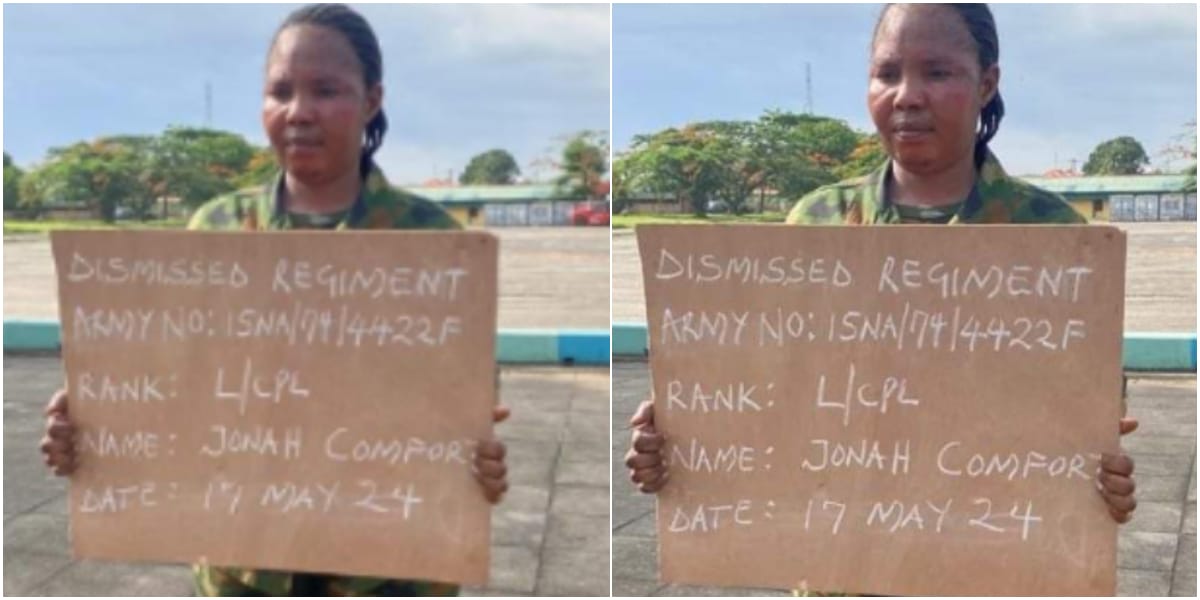 DISMISSED REGIMENT
ARMY NO: 15NA/74/4422F
RANK: L/CPL
NAME: JONAH COMFORT
DATE: 17 MAY 24
DISMISSED REGIMENT
ARMY NO: 15NA/74/4422F
RANK: L/CPL
NAME: JONAH COMFORT
DATE: 17 MAY 24